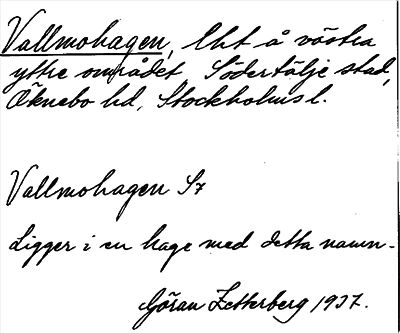 Vallmohagen, lht å västra
yttre området, Södertälje stad,
Öknebo hd, Stockholms l.
Vallmohagen S7
Ligger i en hage med detta namn-
Göran Zetterberg 1937.